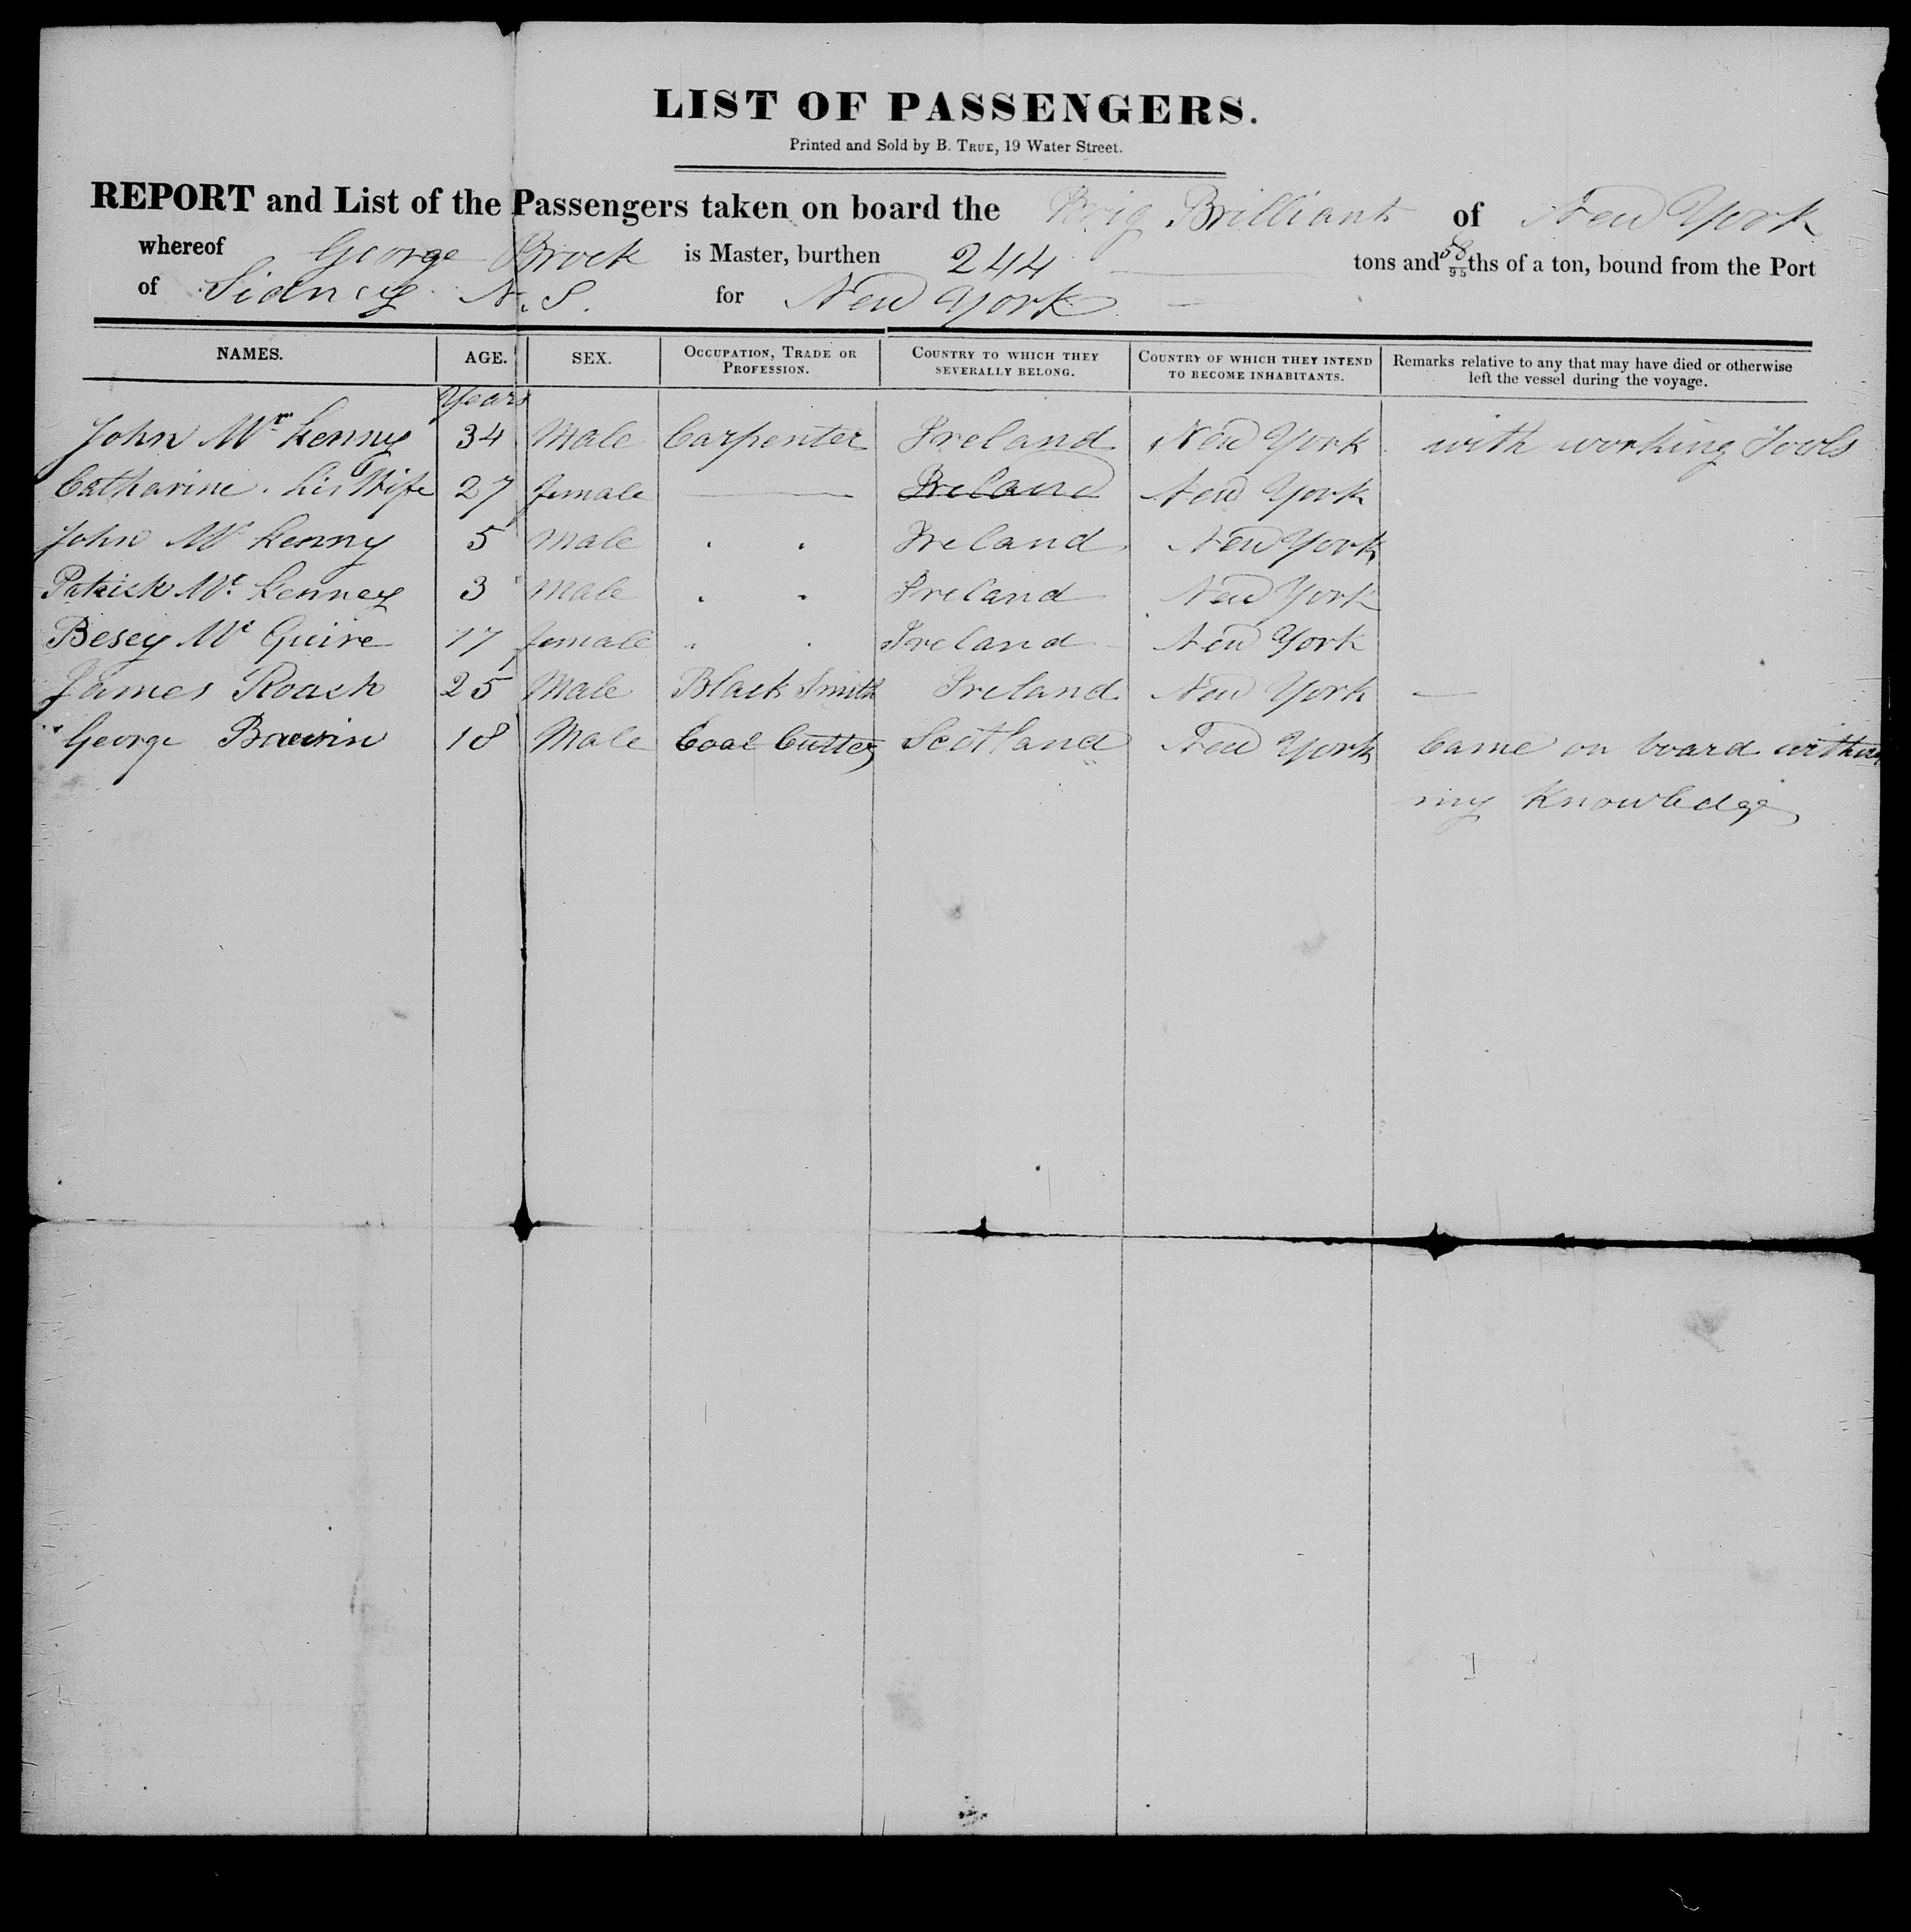 LIST OF PASSENGERS.
Printed and Sold by B. TRUE, 19 Water Street.
REPORT and List of the Passengers taken on board the Brig Brilliant of New York
whereof George Brock is Master, burthen 244 tons and 58/95ths of a ton, bound from the Port
of Sidney N.S. for New York
NAMES. AGE. SEX. OCCUPATION, TRADE OR PROFESSION. COUNTRY TO WHICH THEY SEVERALLY BELONG. COUNTRY OF WHICH THEY INTEND TO BECOME INHABITANTS. Remarks relative to any that may have died or otherwise left the vessel during the voyage.
Years
John Mc Kenny 34 Male Carpenter Ireland New York with working Tools
Catharine his Wife 27 female Ireland New York
John Mc Kenny 5 Male Ireland New York
Patrick Mc Kenney 3 Male Ireland New York
Besey Mc Guire 17 female Ireland New York
James Roach 25 Male Black Smith Ireland New York
George 18 Male Coal Cutter Scotland New York Came on board without
my Knowledge